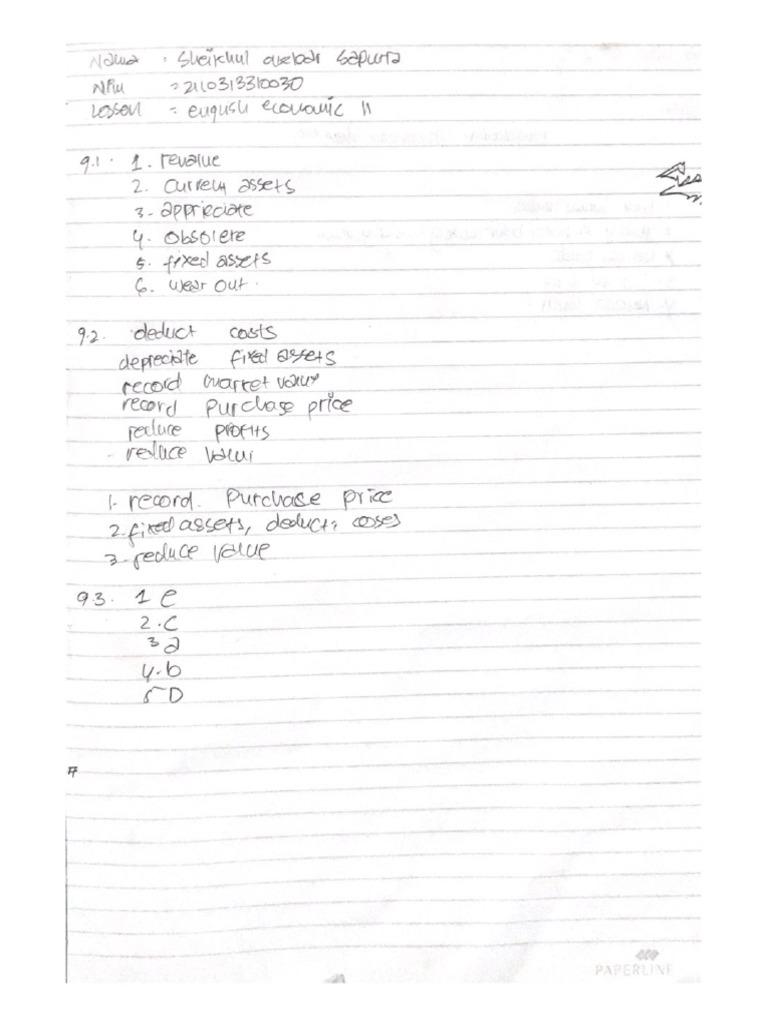 Nama : Sheikhul akbar Saputra
NPM = 2110313310030
Lesson = english economic II
9.1. 1. revalue
2. Current assets
3. appriedate
4. Obsolete
5. fixed assets
6. wear out.
9.2. deduct costs
depreciate fixed assets
record market value
record Purchase price
reduce profits
- reduce value
1. record. Purchase price
2. fixed assets, deduct, costs
3. reduce value
9.3. 1 e
2. C
3 a
4. b
5 D
PAPERLINE